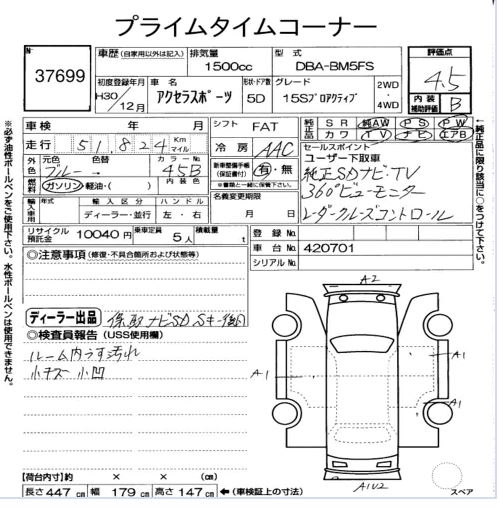 プライムタイムコーナー
37699
車歴 (自家用以外は記入) 排気量 1500cc 型式 DBA-BM5FS
評価点 4.5
内装補助評価 B
初度登録年月 H30/12月 車名 アクセラスポーツ 形状・ドア数 5D グレード 15Sプロアクティブ 2WD・4WD
車検 年 月 シフト FAT
純正品 SR 純AW PS PW
カワ TV ナビ エアB
走行 51,824 Km マイル 冷房 AAC
外色 元色 ブルー 色替 → カラーNo 45B
新車整備手帳(保証書付) 有・無
※書類と一緒に保管して下さい。
燃料 ガソリン 軽油・( )
セールスポイント
ユーザー下取車
純正SDナビ・TV
360°ビューモニター
レーダークルーズコントロール
輸入車用 年式 輸入区分 ディーラー・並行 ハンドル 左・右
名義変更期限 月 日
リサイクル預託金 10040円 乗車定員 5人 積載量 t
登録 No.
車台 No. 420701
シリアル No.
◎注意事項 (修復・不具合箇所および状態等)
ディーラー出品 保取ナビSD Sキー後日
◎検査員報告 (USS使用欄)
ルーム内うす汚れ
小キズ 小凹
A2
A1
A1
A1
A1U2
スペア
【荷台内寸】約 × × (cm)
長さ447cm 幅179cm 高さ147cm ←(車検証上の寸法)
※必ず油性ボールペンをご使用下さい。水性ボールペンは使用できません。
↑純正品に限り該当に○で囲んで下さい。